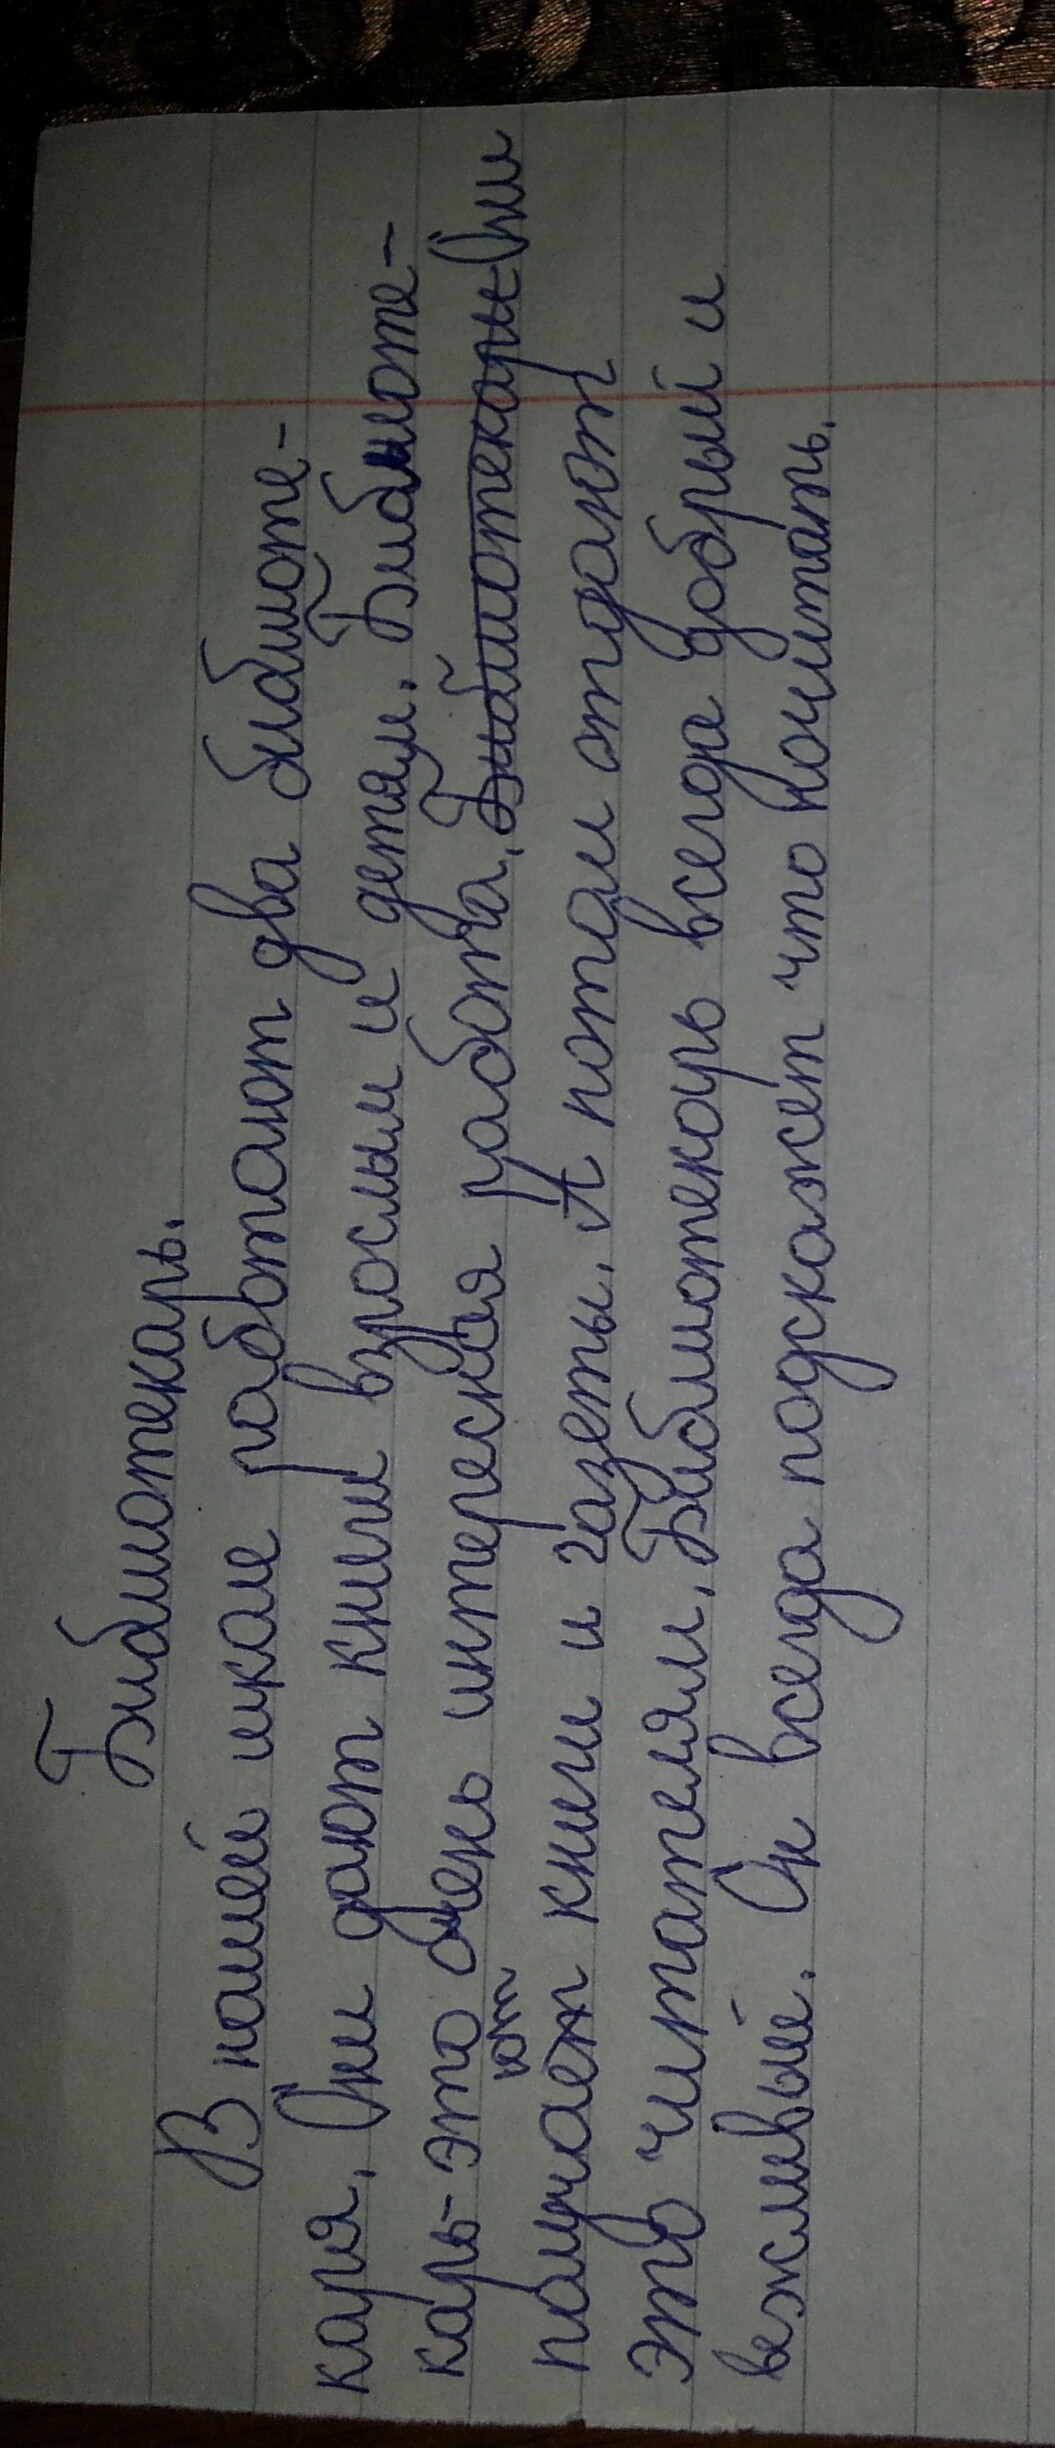 Библиотекарь.
В нашей школе работают два библиоте-
каря. Они дают книги взрослым и детям. Библиоте-
карь-это очень интереская работа. Библиотекары Они
получают книги и газеты. А потом отдают
это читателям. Библиотекарь всегда добрый и
вежливый. Он всегда подскажет что почитать.